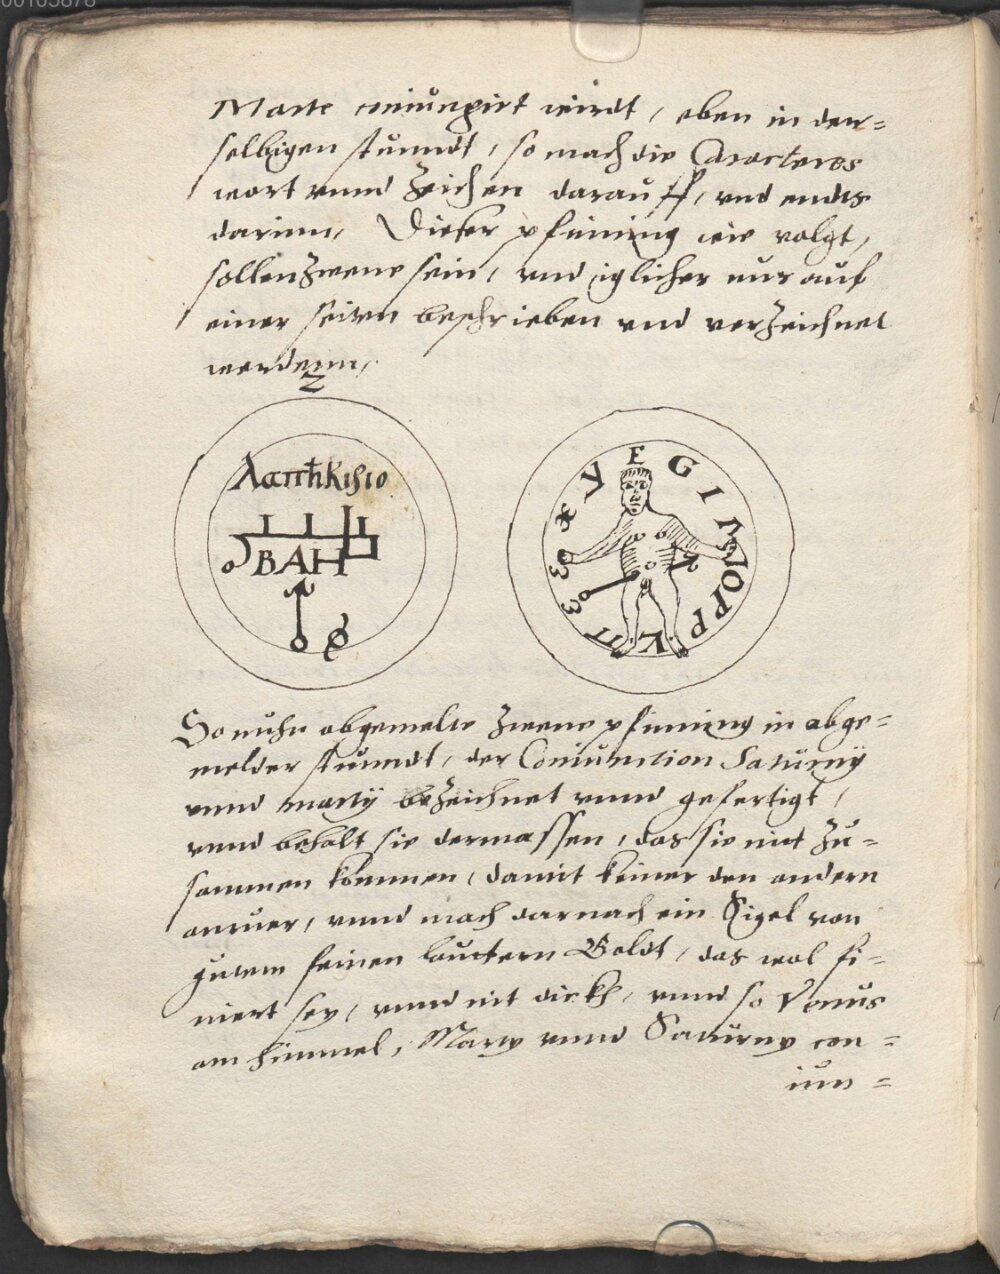 00105878
Marte coniungirt wirdt, eben in der=
selbigen stundt, so mach die Caracteres
wort vnnd Zeichen darauff, vnd endts
darinn, Dieser pfening wie volgt,
sollen Zwene sein, vnd iglicher nur auf
einer seiten beschrieben vnd verZeichnet
werdenn,
2
BAH
V E G I
O P P
So nuhn abgemelte Zwene pfenning in abge=
melder stundt, der Coniunction Saturnÿ
vnnd martÿ beZeichnet vnnd gefertigt,
vnnd behalt sie dermassen, das sie nit Zu=
sammen kommen, damit keiner den andern
anruer, vnnd mach darnach ein Sigel von
gutem feinen lauttern Goldt, das wol fi=
niert sey, vnnd nit dickh, vnnd so Venus
am himmel, Marty vnnd Saturny con=
iun=